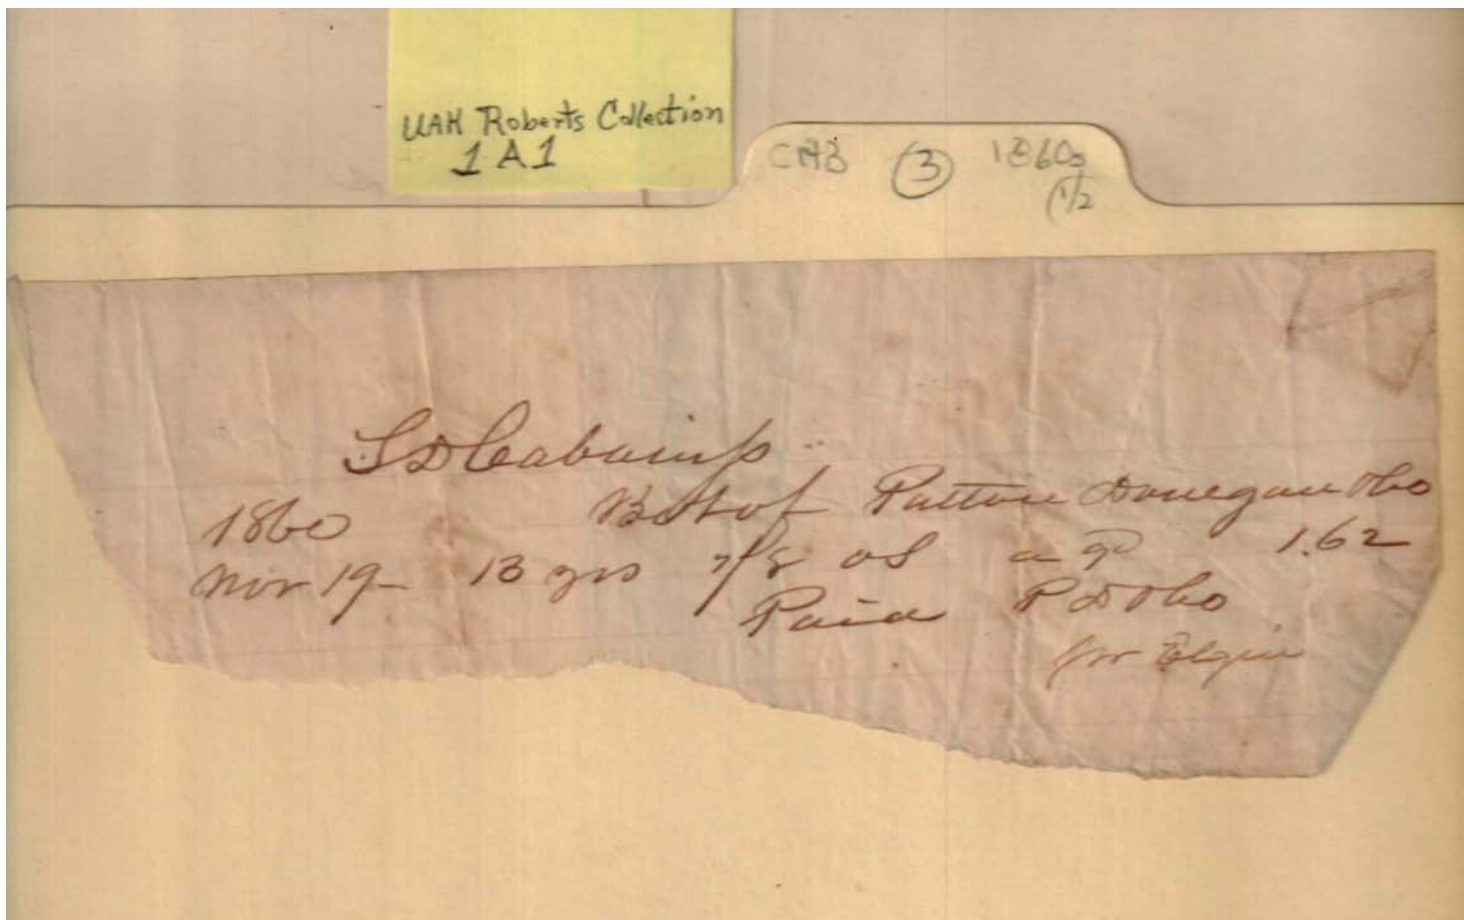 UAH Roberts Collection
1 A 1
CAB ③ 1860s
(1/2
S D Cabaniss
1860 Bot of Patton Donegan & Co
Nov 19 - 13 yds 7/8 1.62
Paid P D & Co
for Elgin